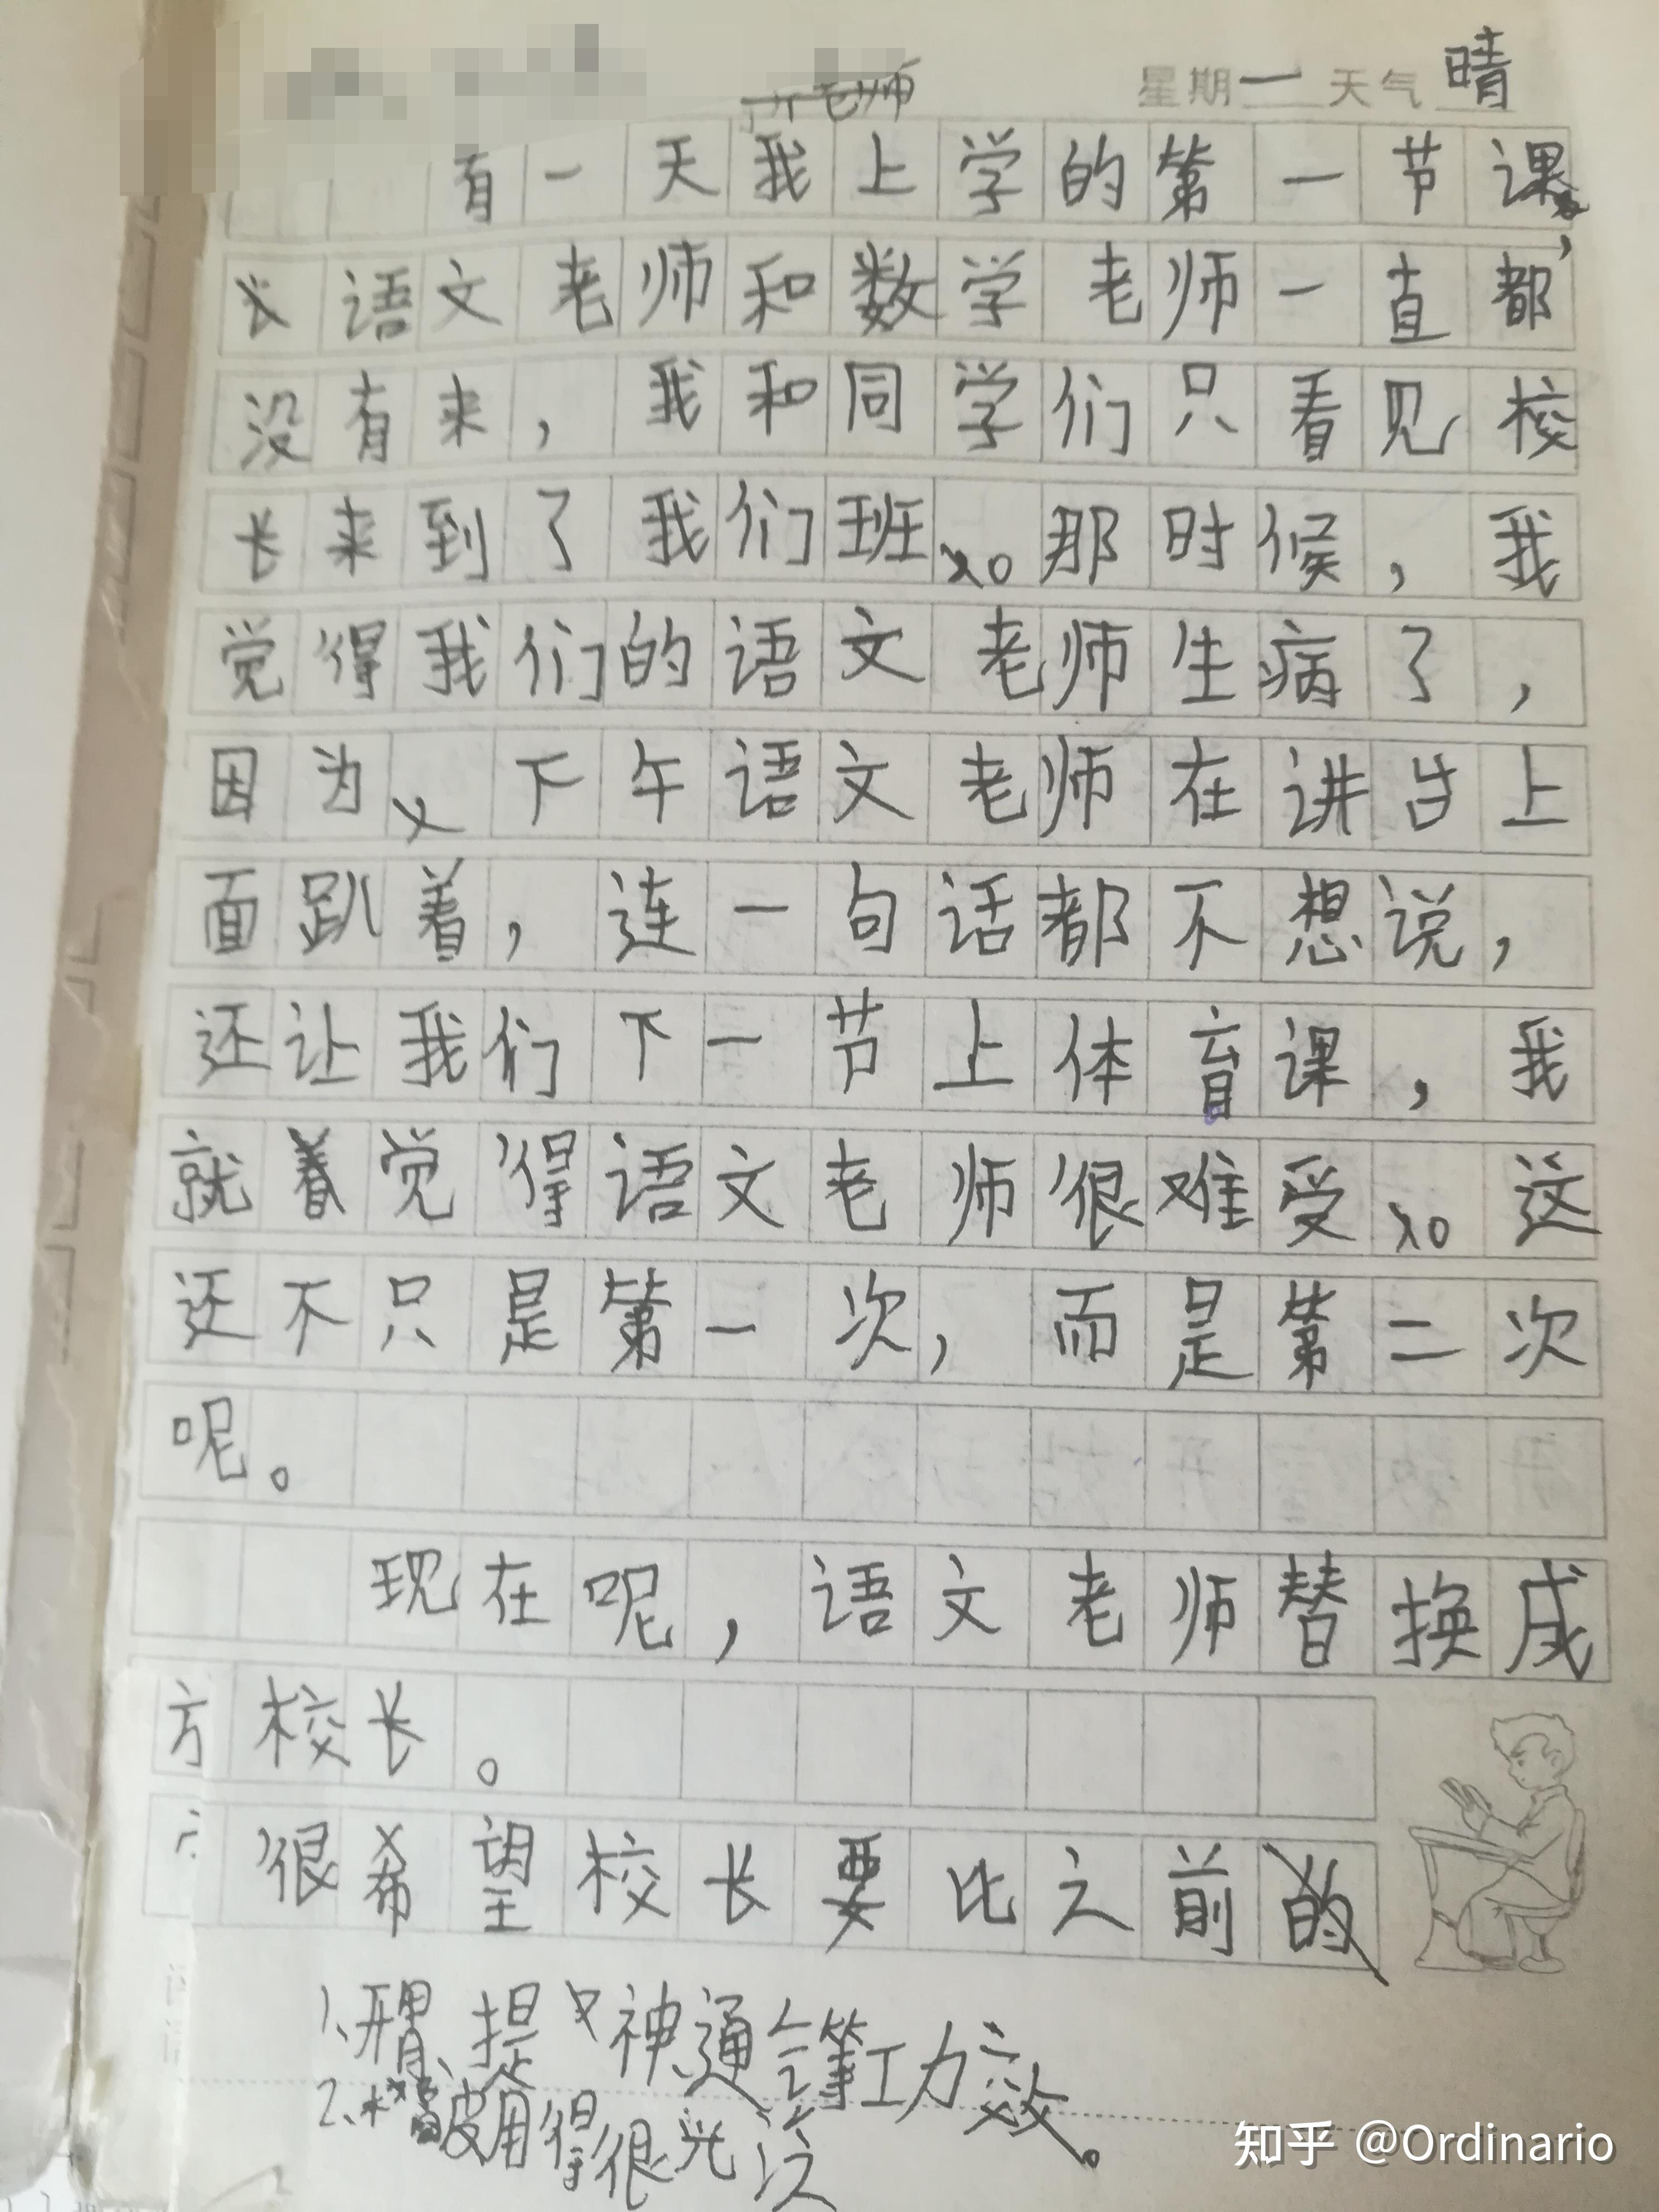 老师 星期一 天气 晴
有一天我上学的第一节课,
语文老师和数学老师一直都
没有来，我和同学们只看见校
长来到了我们班。那时候，我
觉得我们的语文老师生病了，
因为、下午语文老师在讲台上
面趴着，连一句话都不想说，
还让我们下一节上体育课，我
就着觉得语文老师很难受。这
还不只是第一次，而是第二次
呢。
现在呢，语文老师替换成
方校长。
很希望校长要比之前的
1、开胃、提神通等功效。
2、被用得很光
知乎 @Ordinario